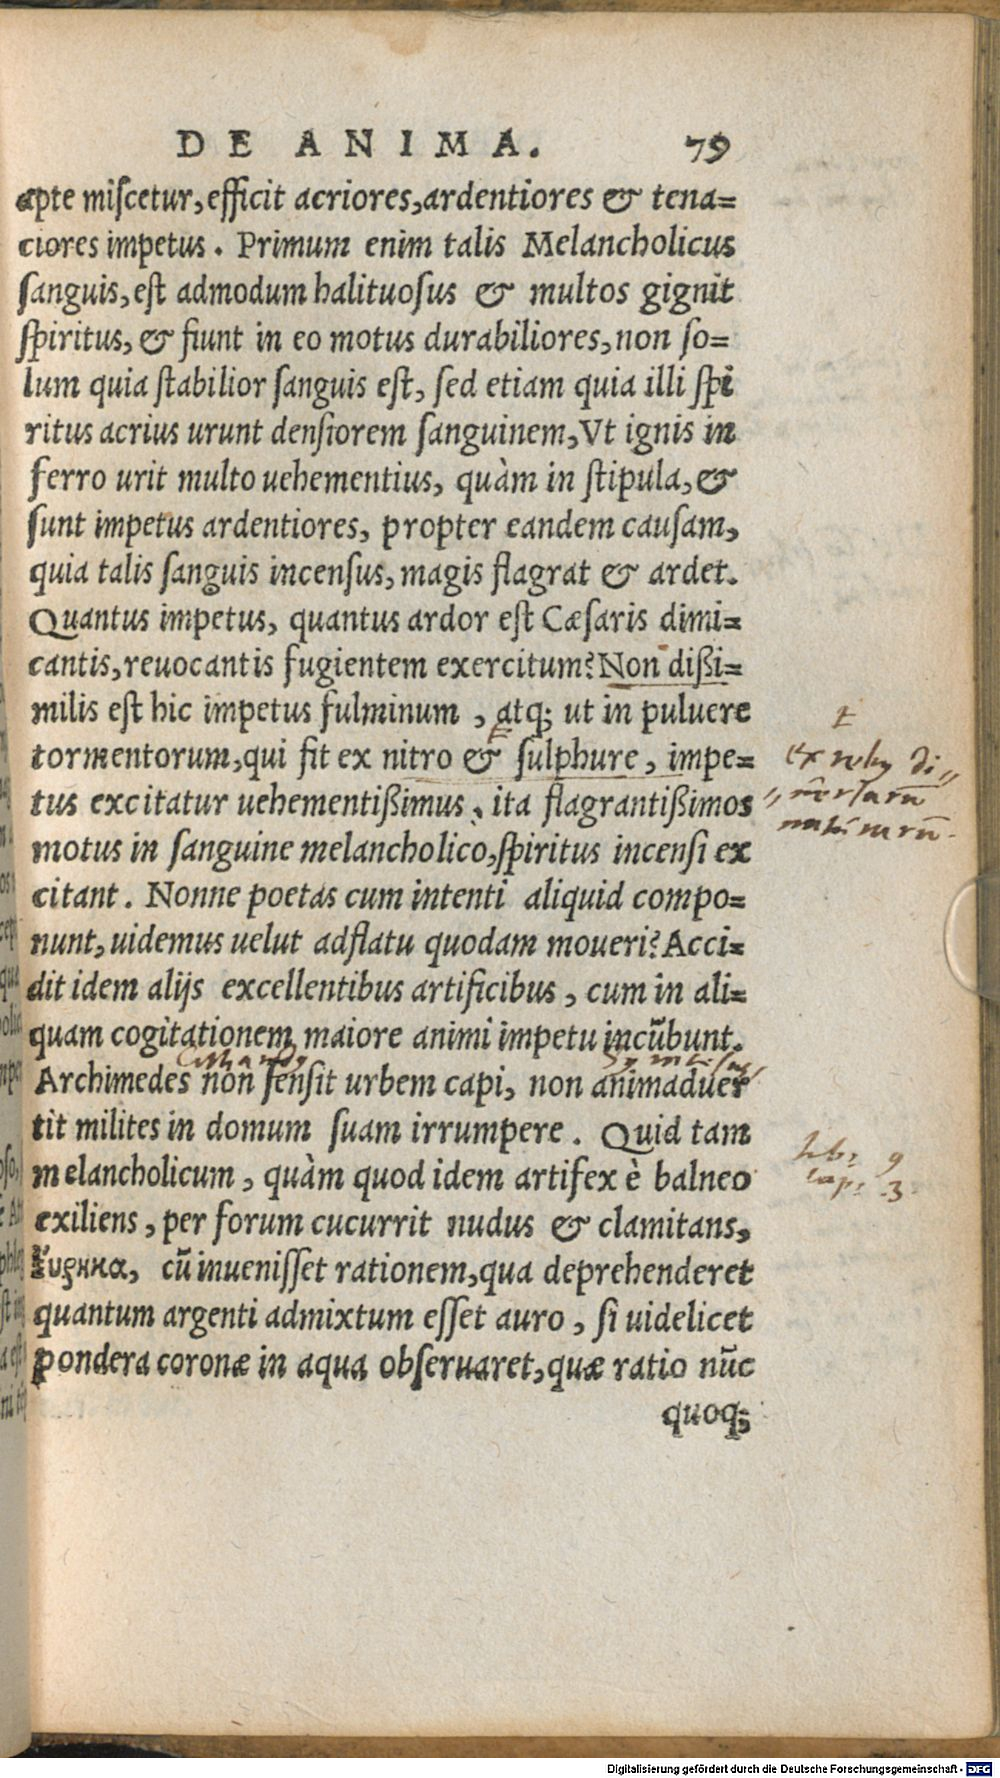 DE ANIMA. 79
apte miſcetur, efficit acriores, ardentiores & tena=
ciores impetus. Primum enim talis Melancholicus
ſanguis, eſt admodum halituoſus & multos gignit
ſpiritus, & fiunt in eo motus durabiliores, non ſo=
lum quia ſtabilior ſanguis eſt, ſed etiam quia illi ſpi
ritus acrius urunt denſiorem ſanguinem, Vt ignis in
ferro urit multo uehementius, quàm in ſtipula, &
ſunt impetus ardentiores, propter eandem cauſam,
quia talis ſanguis incenſus, magis flagrat & ardet.
Quantus impetus, quantus ardor eſt Cæſaris dimi=
cantis, reuocantis fugientem exercitum? Non dißi=
milis eſt hic impetus fulminum, atq; ut in puluere
E
tormentorum, qui fit ex nitro & ſulphure, impe=
ex rebus di„
tus excitatur uehementißimus, ita flagrantißimos
„uersarū
motus in ſanguine melancholico, ſpiritus incenſi ex
naturarū.
citant. Nonne poetas cum intenti aliquid compo=
nunt, uidemus uelut adflatu quodam moueri? Acci=
dit idem alijs excellentibus artificibus, cum in ali=
quam cogitationem maiore animi impetu incūbunt.
Archimedes non ſenſit urbem capi, non animaduer
tit milites in domum ſuam irrumpere. Quid tam
lib: 9
melancholicum, quàm quod idem artifex è balneo
cap: 3.
exiliens, per forum cucurrit nudus & clamitans,
ἕυρηκα, cū inueniſſet rationem, qua deprehenderet
quantum argenti admixtum eſſet auro, ſi uidelicet
pondera coronæ in aqua obſeruaret, quæ ratio nūc
quoq;
Digitalisierung gefördert durch die Deutsche Forschungsgemeinschaft - DFG